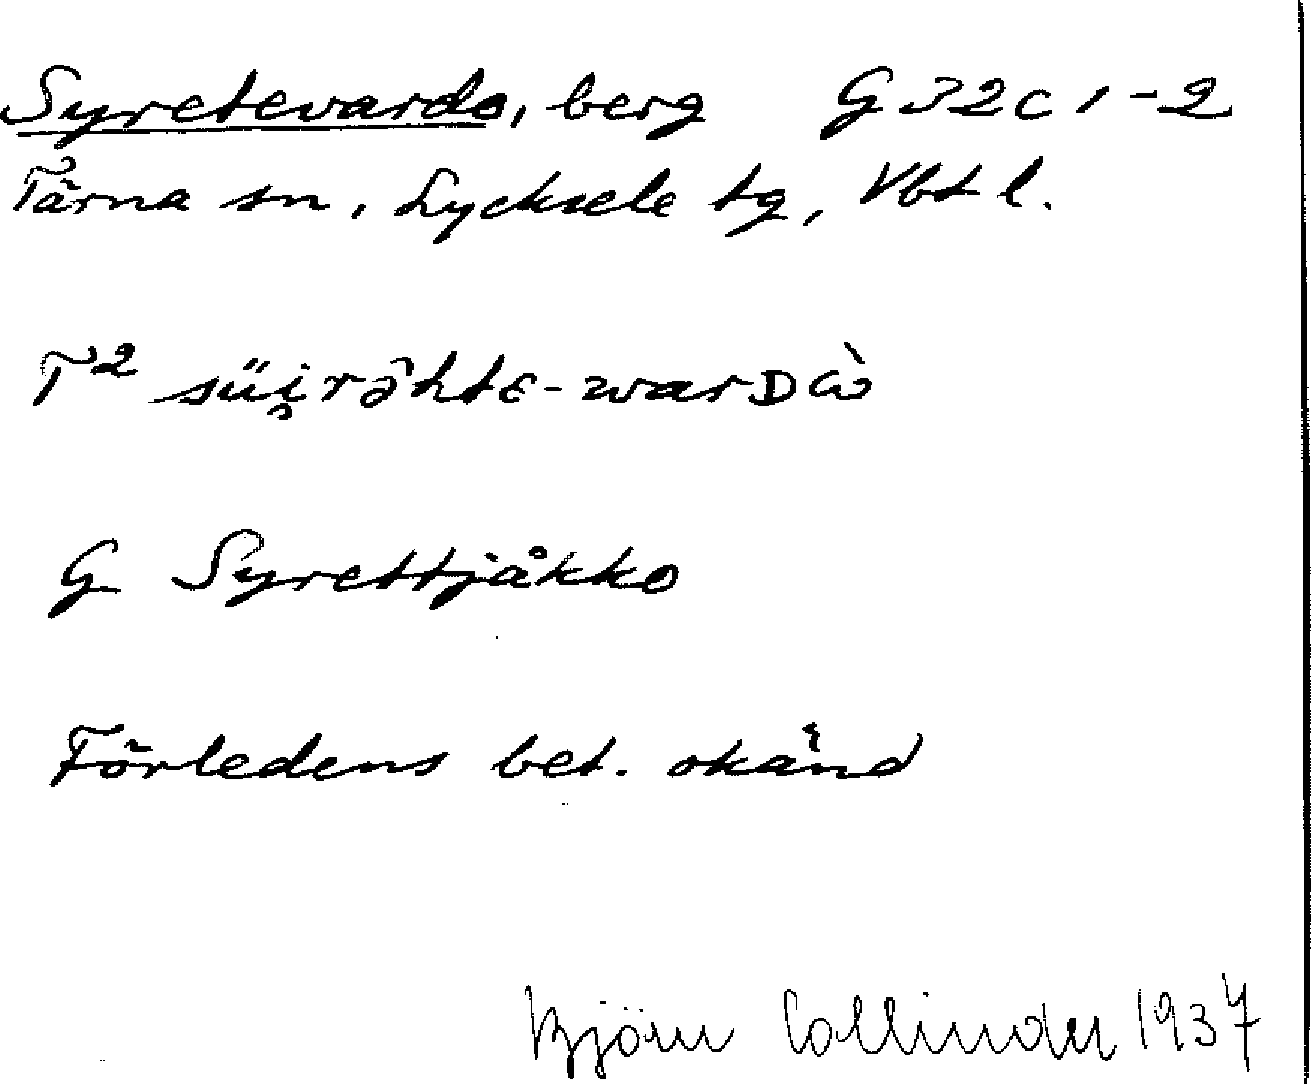 Syretevardo, berg G 32 c 1-2
Tärna sn, Lycksele tg, Vbt l.
T² süi̭rə̂htɛ-warDὼ
G Syrettjåkko
Förledens bet. okänd
Björn Collinder 1937